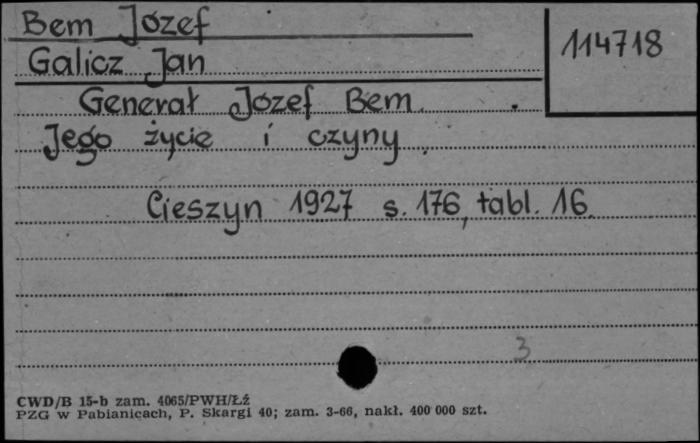 Bem Józef
114718
Galicz Jan
Generał Józef Bem.
Jego życie i czyny.
Cieszyn 1927 s. 176, tabl. 16.
3
CWD/B 15-b zam. 4065/PWH/Łź
PZG w Pabianicach, P. Skargi 40; zam. 3-66, nakł. 400 000 szt.